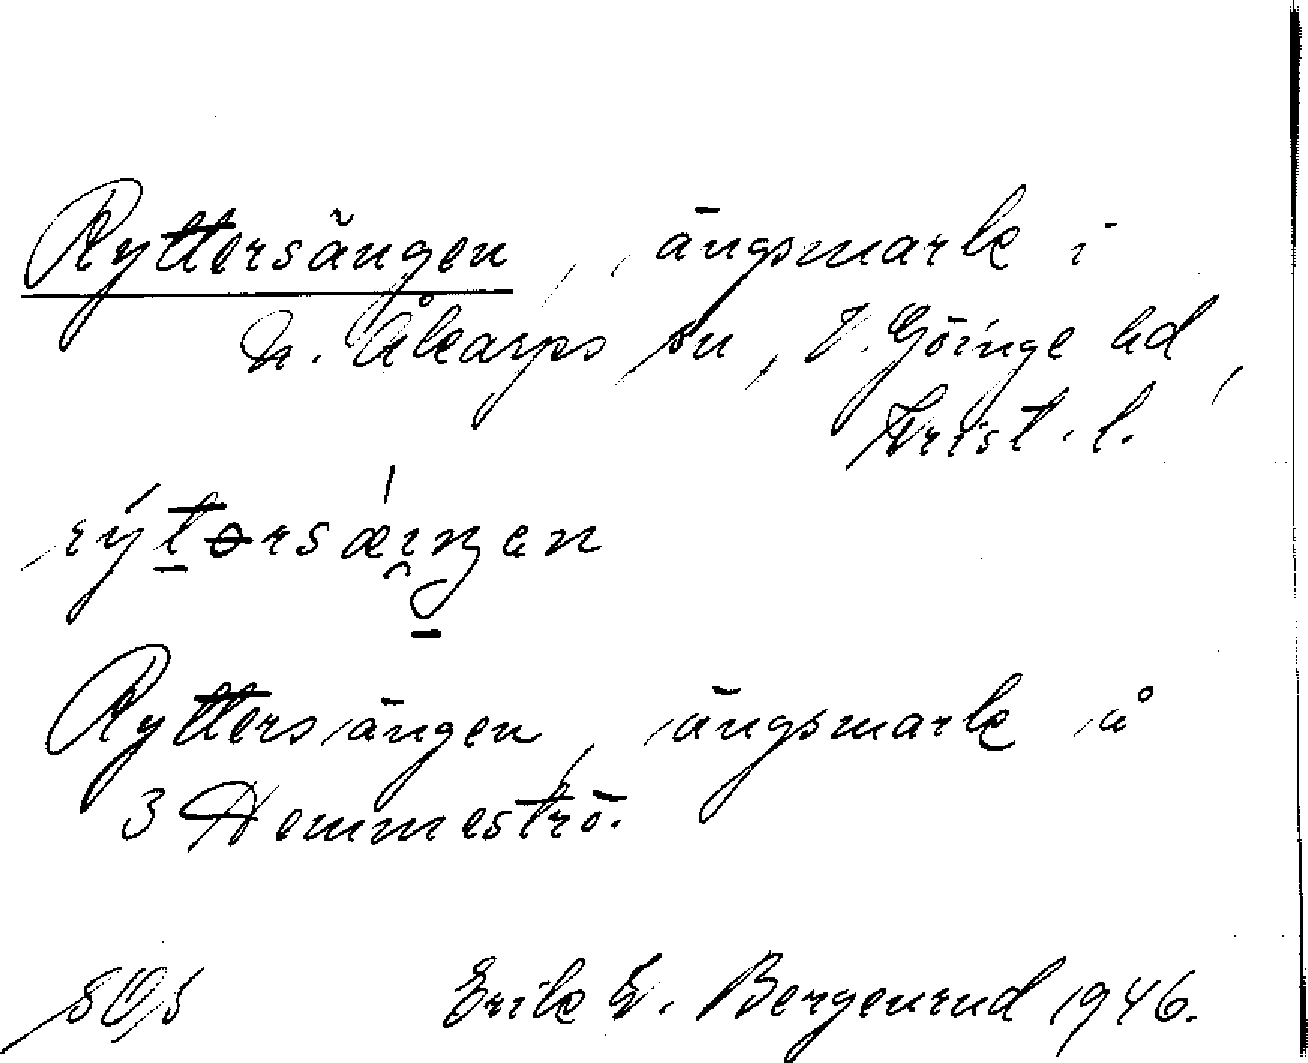 Ryttersängen, ängsmark i
N. Åkarps sn, V. Göinge hd,
Krist. l.
Ryttersängen, ängsmark å
3 Hemmeströ.
Erik E. Bergenrud 1946.